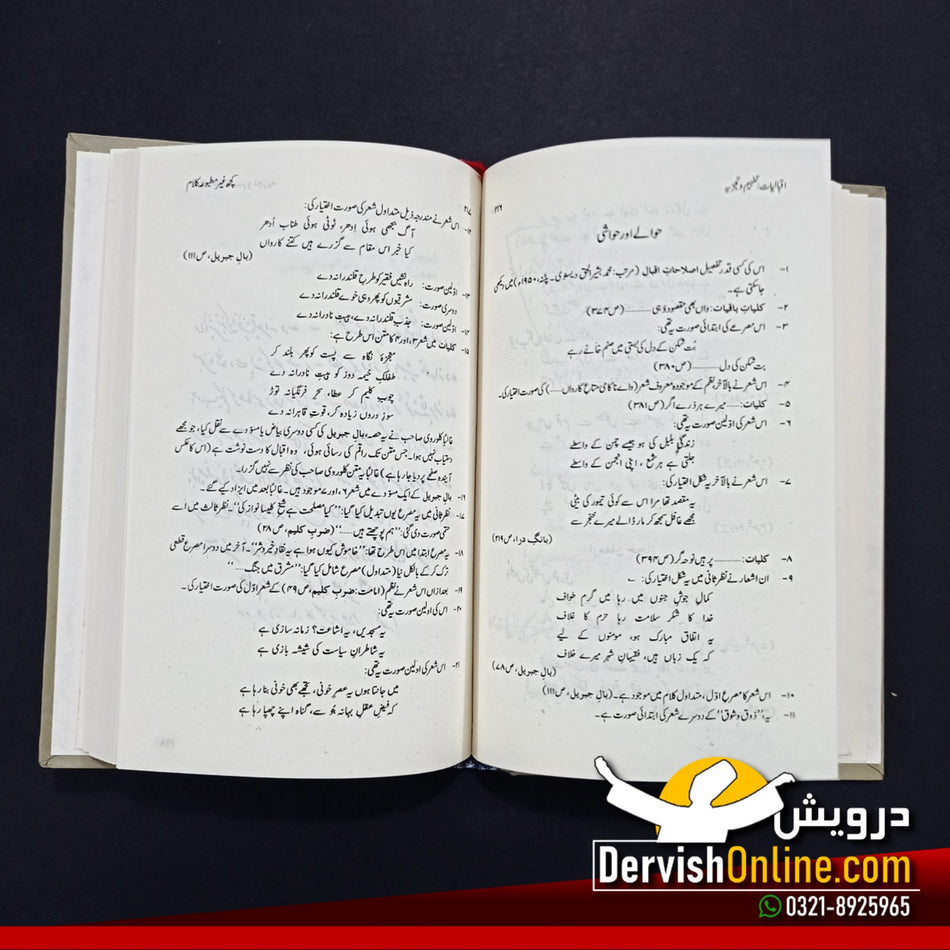 اقبالیات: تفہیم و تجزیہ
۲۱۶
حوالے اور حواشی
۱- اس کی کسی قدر تفصیل اصلاحاتِ اقبال (مرتب: محمد بشیر الحق دیسنوی۔ پٹنہ، ۱۹۵۰ء) میں دیکھی
جا سکتی ہے۔
۲- کلیاتِ باقیات: واں بھی مقصود وُہی ........... (ص ۳۷۴)
۳- اس مصرعے کی ابتدائی صورت یہ تھی:
بُت شکن کے دل کی بستی میں صنم خانے رہے
بت شکن کی دل ........... (ص ۳۸۰)
۴- اس شعر نے بالآخر نظم کے موجودہ معروف شعر (واے ناکامی متاعِ کارواں......) کی صورت اختیار کی۔
۵- کلیات: ........ میرے ہر ذرے اگر (ص ۳۸۱)
۶- اس شعر کی اوّلین صورت یہ تھی:
زندگی بلبل کی ہو جیسے چمن کے واسطے
جلتی ہے ہر شمع، اپنی انجمن کے واسطے
۷- اس شعر نے بالآخر یہ شکل اختیار کی:
یہ مقصد تھا مرا اس سے کوئی تیمور کی بیٹی
مجھے غافل سمجھ کر مار ڈالے میرے خنجر سے
(بانگِ درا، ص ۲۱۹)
۸- کلیات: ........... پر ہیں نوحہ گر (ص ۳۹۴)
۹- ان اشعار نے نظرثانی میں یہ شکل اختیار کی:
کمالِ جوشِ جنوں میں رہا میں گرمِ طواف
خدا کا شکر سلامت رہا حرم کا غلاف
یہ اتفاق مبارک ہو، مومنوں کے لیے
کہ یک زباں ہیں، فقیہانِ شہر میرے خلاف
(بالِ جبریل، ص ۴۸)
۱۰- اس شعر کا مصرع اوّل، متداول کلام میں موجود ہے۔ (بالِ جبریل، ص ۱۱۱)
۱۱- یہ ''ذوق و شوق'' کے دوسرے شعر کی ابتدائی صورت ہے۔
کچھ غیر مطبوعہ کلام
۲۱۷
۱۲- اس شعر نے مندرجہ ذیل متداول شعر کی صورت اختیار کی:
آگ بجھی ہوئی اِدھر، ٹوٹی ہوئی طناب اُدھر
کیا خبر اس مقام سے گزرے ہیں کتنے کارواں
(بالِ جبریل، ص ۱۱۱)
۱۳- اوّلین صورت: راہ نشیں فقیر کو طرحِ قلندرانہ دے
دوسری صورت: مشرقیوں کو پھر وہی خوے قلندرانہ دے
۱۴- اوّلین صورت: جذبِ قلندرانہ دے، ہیبتِ نادرانہ دے
۱۵- کلیات میں شعر ۳، اور ۴ کا متن اس طرح ہے:
معجزۂ نگاہ سے پست کو پھر بلند کر
طفلکِ خیمہ دوز کو ہیبتِ نادرانہ دے
چوبِ کلیم کر عطا، سحرِ فرنگیانہ توڑ
سوزِ دروں زیادہ کر، قوتِ قاہرانہ دے
غالباً کلوروی صاحب نے یہ حصہ، بالِ جبریل کی کسی دوسری بیاض یا مسوّدے سے نقل کیا، جو مجھے
دستیاب نہیں ہوا۔ جس متن تک راقم کی رسائی ہوئی، وہ اقبال کا دست نوشت ہے (اس کا عکس
آیندہ صفحے پر دیا جا رہا ہے) غالباً یہ متن کلوروی صاحب کی نظر سے نہیں گزرا۔
۱۶- بالِ جبریل کے ایک مسوّدے میں شعر ۶، اور ۷ موجود ہیں۔ غالباً بعد میں ایزاد کیے گئے۔
۱۷- نظرثانی میں یہ مصرع یوں تبدیل کیا گیا: ''کیا مصلحت ہے شیخِ کلیسا نواز کی''۔ نظرِ ثالث میں اسے
حتمی صورت دی گئی: ''ہم پوچھتے ہیں .......'' (ضربِ کلیم، ص ۲۸)
۱۸- یہ مصرع ابتدا میں اس طرح تھا: ''خاموش کیوں ہوا ہے یہ نقادِ خیر و شر''۔ آخر میں دوسرا مصرع قطعی
ترک کر کے بالکل نیا (متداول) مصرع شامل کیا گیا: ''مشرق میں جنگ .......''
۱۹- بعد ازاں اس شعر نے نظم (امامت: ضربِ کلیم، ص ۴۹) کے شعر اوّل کی صورت اختیار کی۔
۲۰- اس کی اولین صورت یہ تھی:
یہ مسجدیں، یہ اشاعت؟ زمانہ سازی ہے
یہ شاطرانِ سیاست کی شیشہ بازی ہے
۲۱- اس شعر کی اولین صورت یہ تھی:
میں جانتا ہوں یہ عصرِ خونی، تجھے بھی خونی بنا رہا ہے
کہ فیضِ عقلِ بہانہ جُو سے، گناہ اپنے چھپا رہا ہے
درویش
DervishOnline.com
0321-8925965